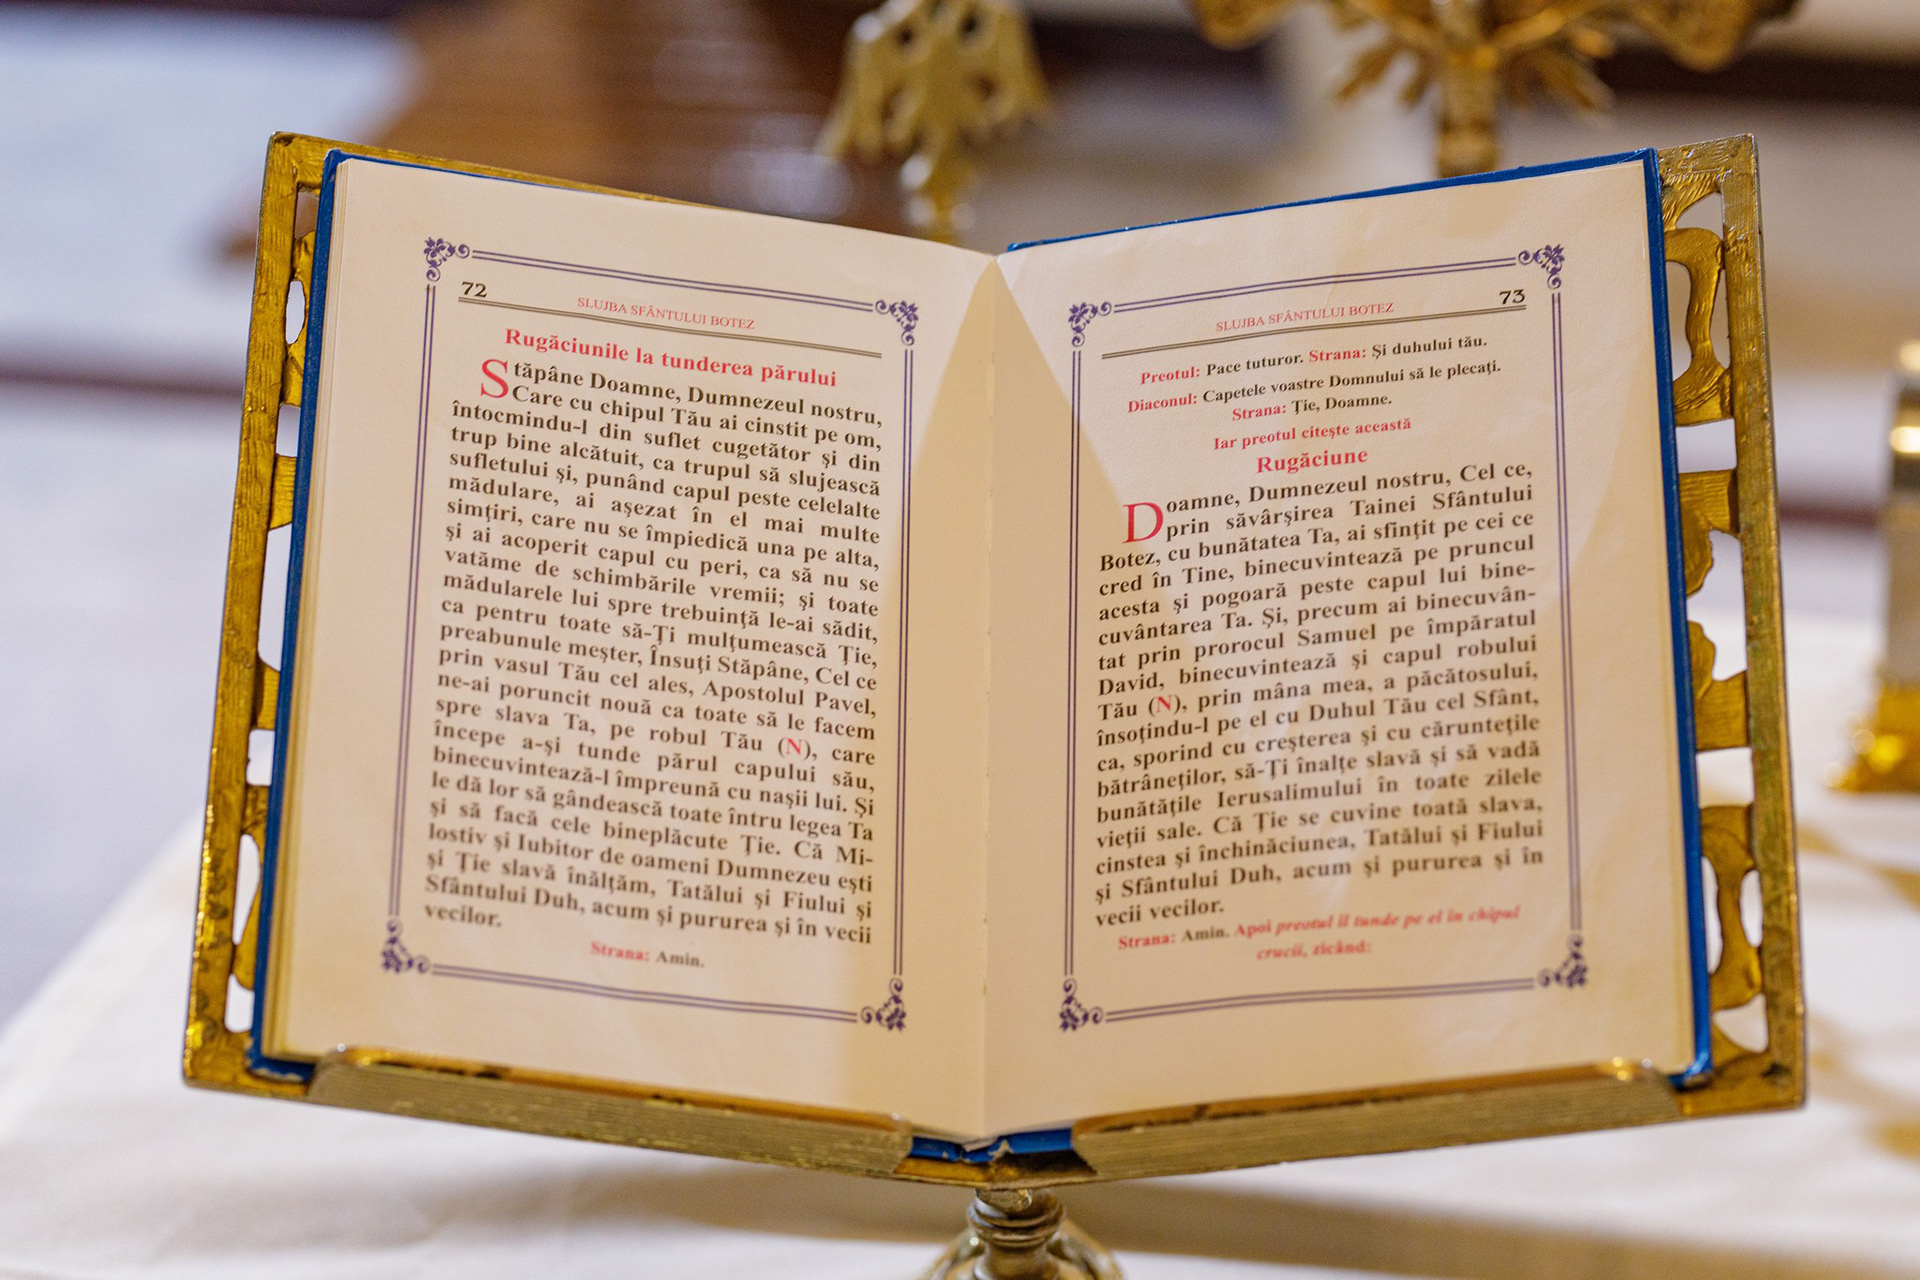 72
SLUJBA SFÂNTULUI BOTEZ
Rugăciunile la tunderea părului
Stăpâne Doamne, Dumnezeul nostru,
Care cu chipul Tău ai cinstit pe om,
întocmindu-l din suflet cugetător şi din
trup bine alcătuit, ca trupul să slujească
sufletului şi, punând capul peste celelalte
mădulare, ai aşezat în el mai multe
simţiri, care nu se împiedică una pe alta,
şi ai acoperit capul cu peri, ca să nu se
vatăme de schimbările vremii; şi toate
mădularele lui spre trebuinţă le-ai sădit,
ca pentru toate să-Ţi mulţumească Ţie,
preabunule meşter, Însuţi Stăpâne, Cel ce
prin vasul Tău cel ales, Apostolul Pavel,
ne-ai poruncit nouă ca toate să le facem
spre slava Ta, pe robul Tău (N), care
începe a-şi tunde părul capului său,
binecuvintează-l împreună cu naşii lui. Şi
le dă lor să gândească toate întru legea Ta
şi să facă cele bineplăcute Ţie. Că Mi-
lostiv şi Iubitor de oameni Dumnezeu eşti
şi Ţie slavă înălţăm, Tatălui şi Fiului şi
Sfântului Duh, acum şi pururea şi în vecii
vecilor.
Strana: Amin.
73
SLUJBA SFÂNTULUI BOTEZ
Preotul: Pace tuturor. Strana: Şi duhului tău.
Diaconul: Capetele voastre Domnului să le plecaţi.
Strana: Ţie, Doamne.
Iar preotul citeşte această
Rugăciune
Doamne, Dumnezeul nostru, Cel ce,
prin săvârşirea Tainei Sfântului
Botez, cu bunătatea Ta, ai sfinţit pe cei ce
cred în Tine, binecuvintează pe pruncul
acesta şi pogoară peste capul lui bine-
cuvântarea Ta. Şi, precum ai binecuvân-
tat prin prorocul Samuel pe împăratul
David, binecuvintează şi capul robului
Tău (N), prin mâna mea, a păcătosului,
însoţindu-l pe el cu Duhul Tău cel Sfânt,
ca, sporind cu creşterea şi cu cărunteţile
bătrâneţilor, să-Ţi înalţe slavă şi să vadă
bunătăţile Ierusalimului în toate zilele
vieţii sale. Că Ţie se cuvine toată slava,
cinstea şi închinăciunea, Tatălui şi Fiului
şi Sfântului Duh, acum şi pururea şi în
vecii vecilor.
Strana: Amin. Apoi preotul îl tunde pe el în chipul
crucii, zicând: